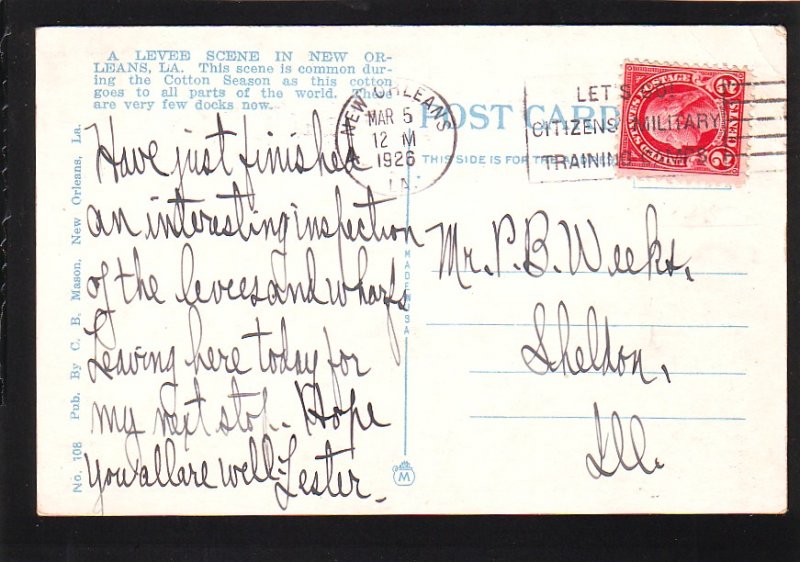 A LEVEE SCENE IN NEW OR-
LEANS, LA. This scene is common dur-
ing the Cotton Season as this cotton
goes to all parts of the world. There
are very few docks now.
Have just finished
an interesting inspection
of the levees and wharfs
Leaving here today for
my next stop. Hope
you all are well-
Lester.
No. 108 Pub. By C. B. Mason, New Orleans, La.
NEW ORLEANS
MAR 5
12 M
1926
LA.
POST CARD
THIS SIDE IS FOR THE ADDRESS
LET'S GO!
CITIZENS MILITARY
TRAINING CAMPS
2 CENTS 2
MADE IN USA
M
Mr. P. B. Weeks,
Sheldon,
Ill.